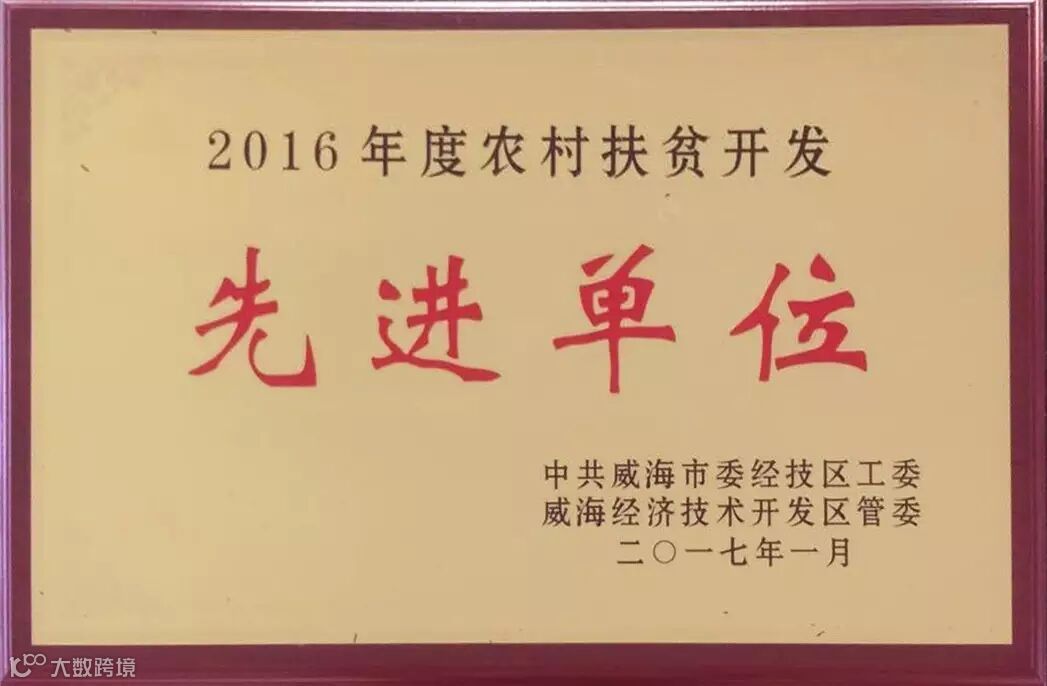 2016年度农村扶贫开发
先进单位
中共威海市委经技区工委
威海经济技术开发区管委
二〇一七年一月
大数跨境